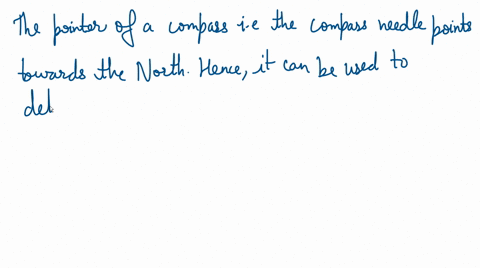 The pointer of a compass i.e the compass needle points
towards the North. Hence, it can be used to
det